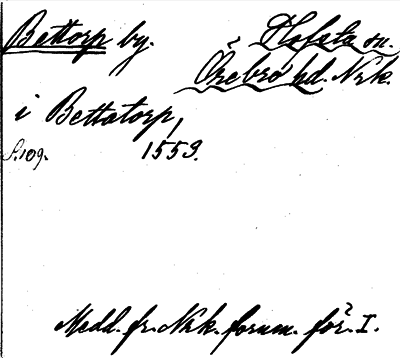 Bettorp by. Hofsta sn.
Örebro hd. Nrk.
i Bettatorp,
S. 109. 1559.
Medd. fr. Nrk. fornm. för. I.